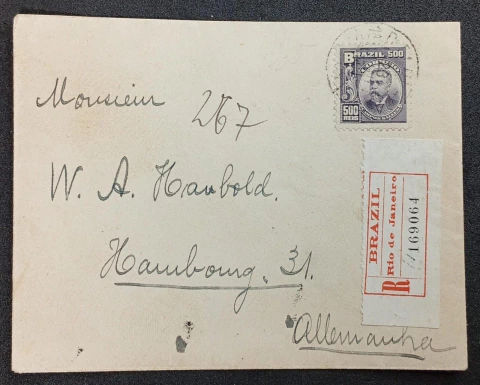 BRAZIL 500
500
REIS
Monsieur 267
W. A. Haubold.
Hambourg, 31.
Allemanha
BRAZIL
Rio de Janeiro
R 169064